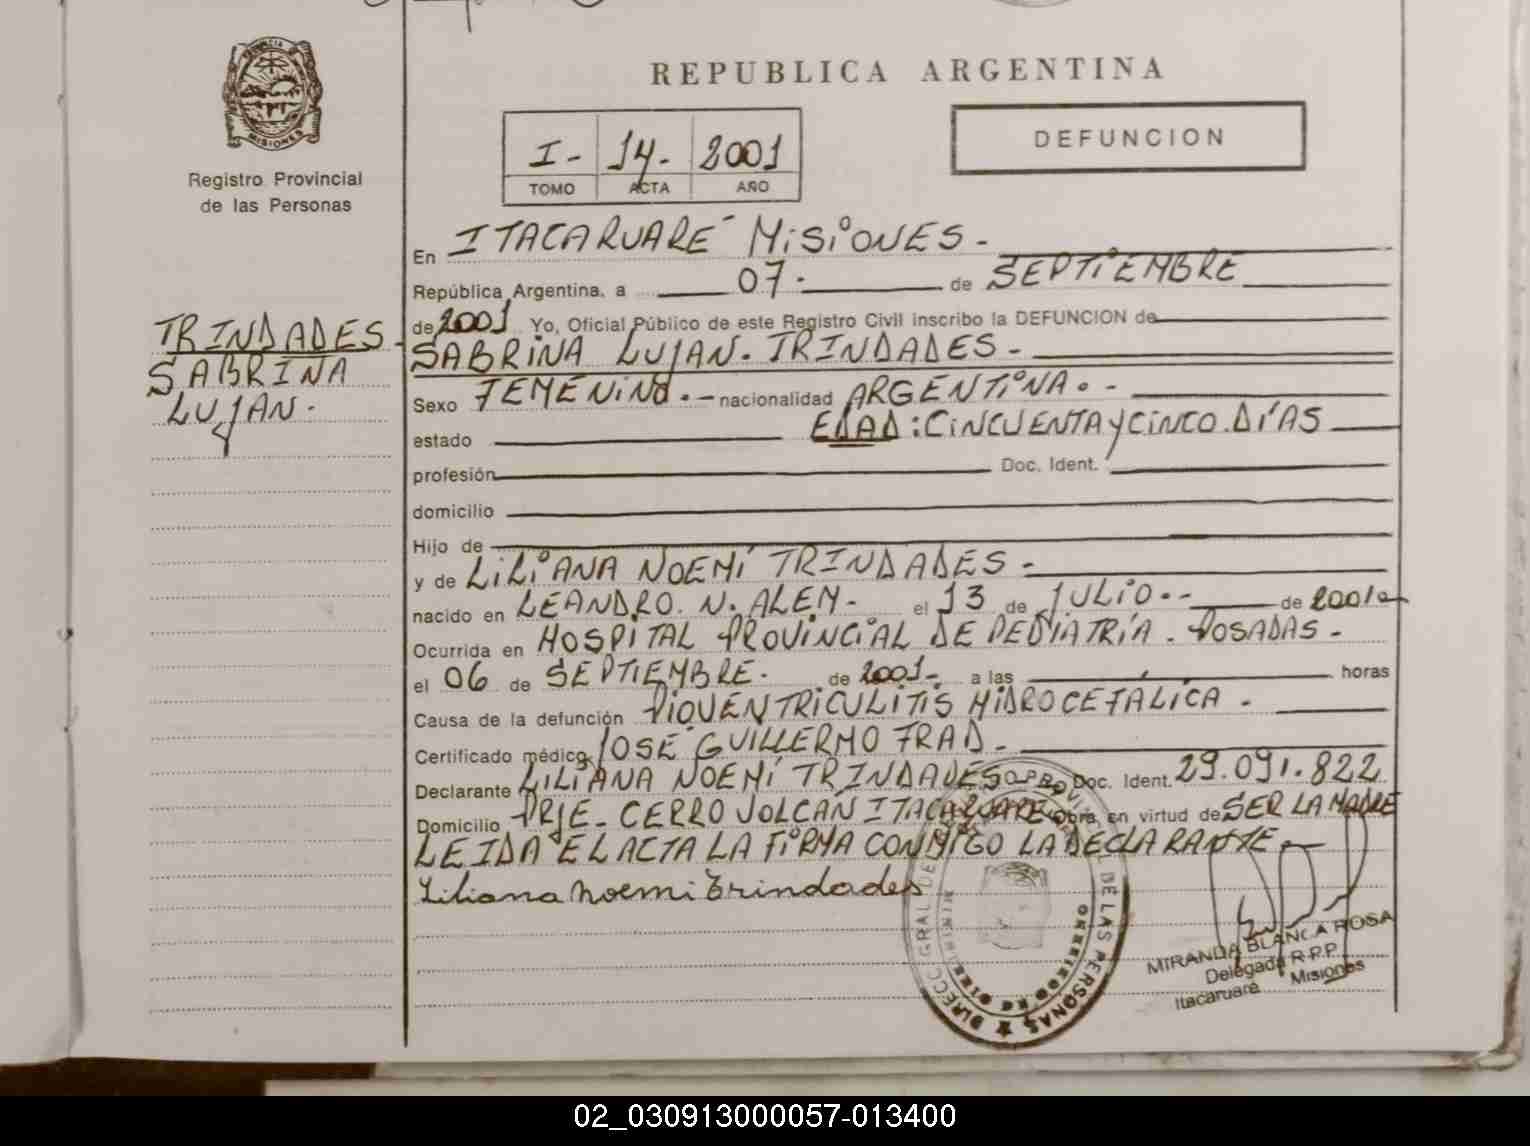 PROVINCIA DE
MISIONES
Registro Provincial
de las Personas
TRINDADES
SABRINA
LUJAN.
REPUBLICA ARGENTINA
I- 14- 2001
TOMO ACTA AÑO
DEFUNCION
En ITACARUARÉ MISIONES -
República Argentina, a 07- de SEPTIEMBRE
de 2001 Yo, Oficial Público de este Registro Civil inscribo la DEFUNCION de
SABRINA LUJAN. TRINDADES -
Sexo FEMENINO.- nacionalidad ARGENTINA.-
estado EDAD: CINCUENTA Y CINCO. DÍAS
profesión Doc. Ident.
domicilio
Hijo de
y de LILIANA NOEMÍ TRINDADES -
nacido en LEANDRO. N. ALEM- el 13 de JULIO.-- de 2001
Ocurrida en HOSPITAL PROVINCIAL DE PEDIATRÍA. POSADAS-
el 06 de SEPTIEMBRE. de 2001- a las horas
Causa de la defunción PIOVENTRICULITIS HIDROCEFÁLICA -
Certificado médico JOSÉ GUILLERMO FRAD -
Declarante LILIANA NOEMÍ TRINDADES Doc. Ident. 29.091.822
Domicilio PRJE- CERRO VOLCAN ITACARUARE obra en virtud de SER LA MADRE
LEIDA EL ACTA LA FIRMA CONMIGO LA DECLARANTE -
Liliana Noemi Trindades
DIRECC. GRAL. DEL PROVINCIAL DE LAS PERSONAS
MIRANDA BLANCA ROSA
Delegada R.P.P.
Itacaruaré Misiones
02_030913000057-013400